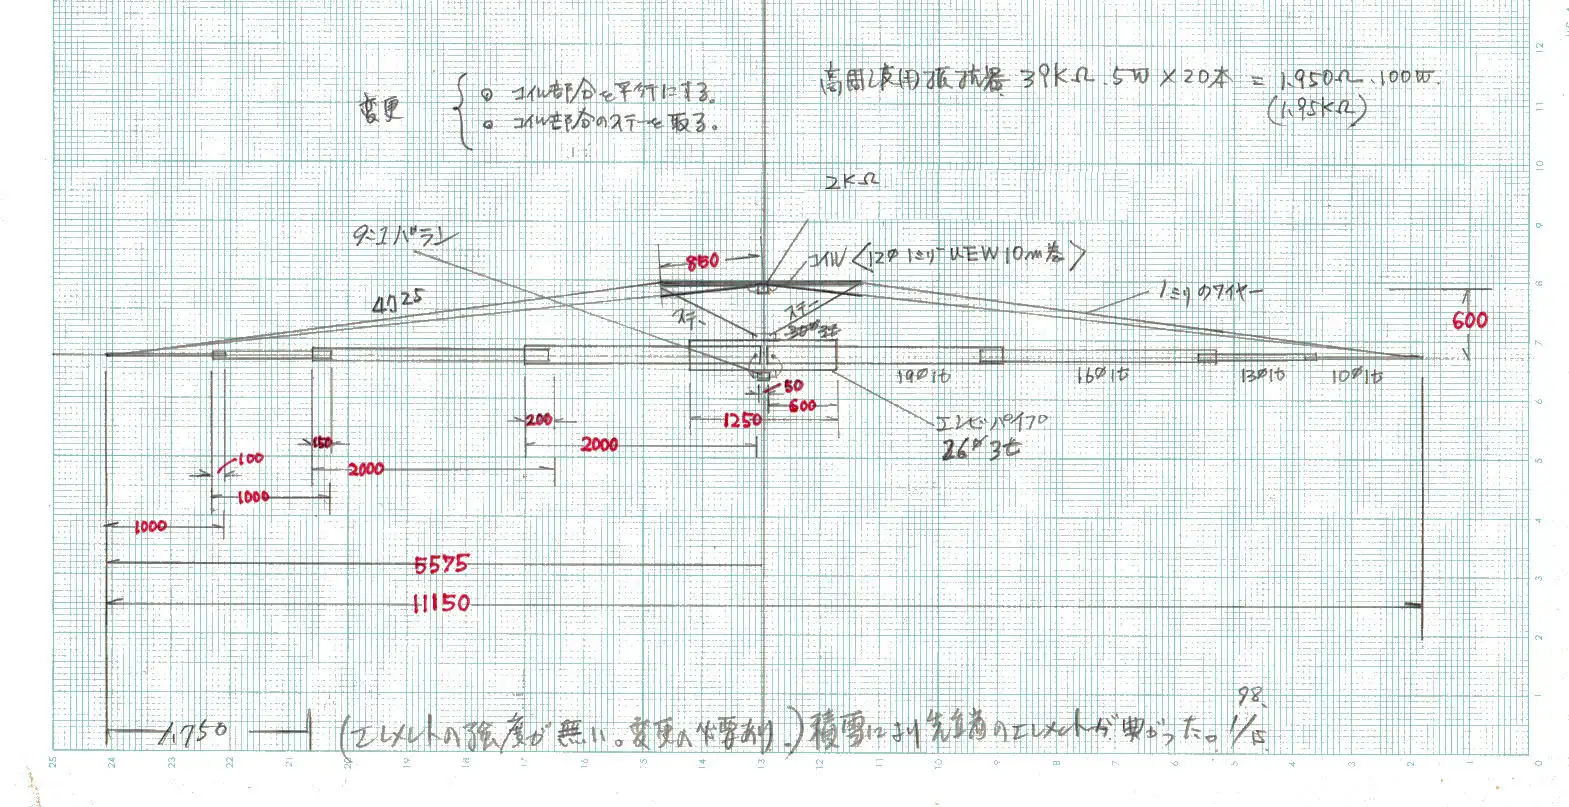 高周波用抵抗器 39KΩ.5W×20本 = 1,950Ω.100W.
(1.95KΩ)
変更
◎ コイル部分を平行にする。
◎ コイル部分のステーを取る。
2KΩ
9:1バラン
850
コイル〈12φ1ミリUEW10m巻〉
4925
1ミリのワイヤー
600
ステー
ステー
19φ1t
16φ1t
13φ1t
10φ1t
50
600
1250
200
2000
エンビパイプ
26φ3t
150
100
2000
1000
1000
5575
11150
1,750
(エレメントの強度が無い。変更の必要あり.)積雪により先端のエレメントが曲がった。
98.
1/15
25 24 23 22 21 20 19 18 17 16 15 14 13 12 11 10 9 8 7 6 5 4 3 2 1 0
12
11
10
9
8
7
6
5
4
3
2
1